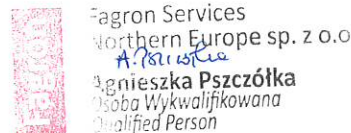 Fagron Services
Northern Europe sp. z o.o
Agnieszka Pszczółka
Osoba Wykwalifikowana
Qualified Person